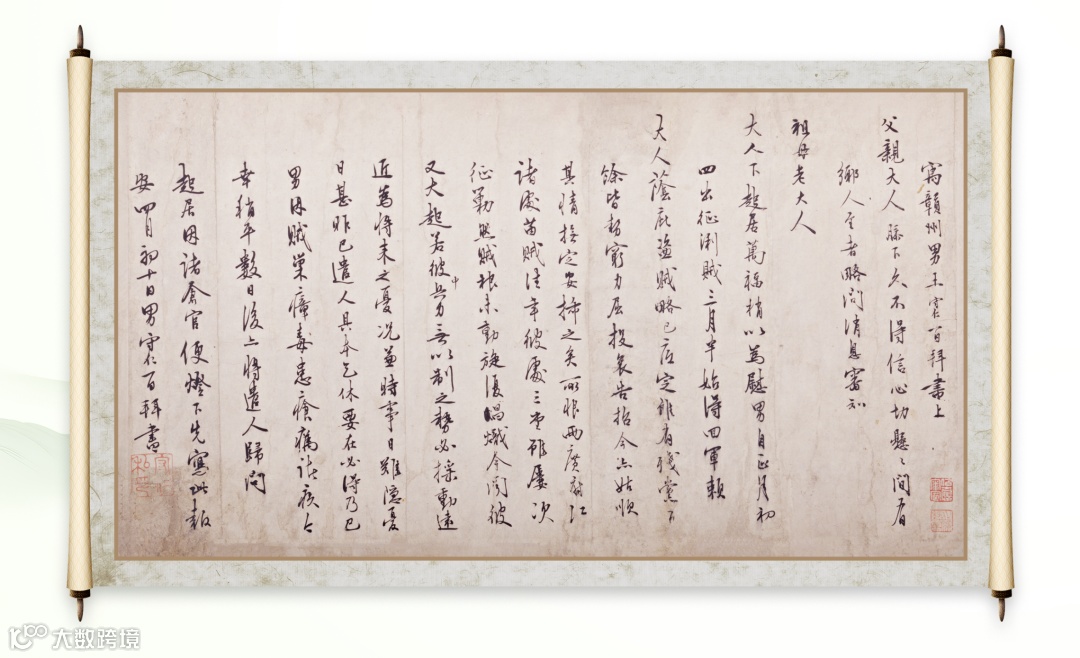 寓贛州男王守仁百拜書上
父親大人膝下久不得信心切懸懸間有
鄉人至者略問消息審知
祖母老大人
大人下起居萬福稍以為慰男自正月初
四出征浰賊三月半始得回軍賴
大人蔭庇盜賊略已底定雖有殘黨
餘皆勢窮力屈投哀告招今亦姑順
其情撫定安插之矣所恨兩廣府江
諸處苗賊往年彼處三堂雖屢次
征勦然賊根未動旋復昌熾今聞彼
又大起若彼中兵力無以制之勢必搖動遠
近為將來之憂況兼時事日難隱憂
日甚昨已遣人具本乞休要在必得乃已
男因賊巢瘴毒患瘡癘諸疾今
幸稍平數日後亦將遣人歸問
起居因諸倉官便燈下先寫此報
安四月初十日男守仁百拜書
大数跨境